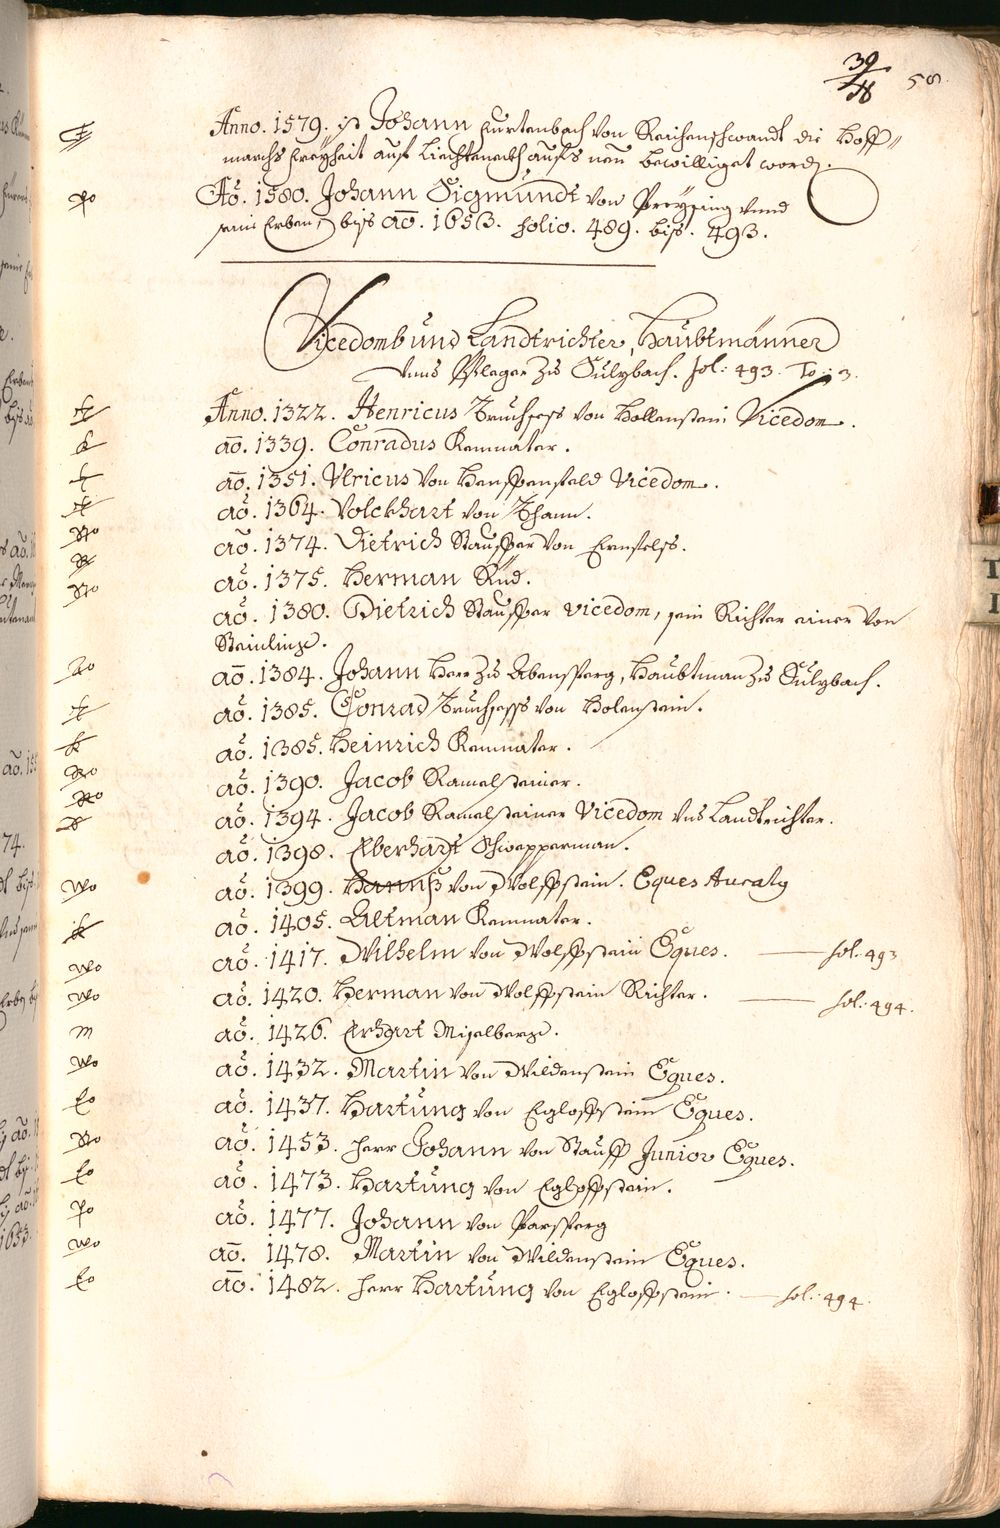 39
58.
Anno. 1579. ist Johann Furtenbach von Reichenschwandt die Hoff-
marchs Freyheit auf Liechtenegkh aufs neu bewilliget word.
Ao. 1580. Johann Sigmundt von Preysing unnd
sein Erben, biss ao. 1653. folio. 489. biss. 493.
Vicedomb und Landtrichter, Haubtmänner
unnd Pfleger zu Sulzbach. fol: 493. To: 3.
Anno. 1322. Henricus Truchsess von Hollenstein Vicedom.
ao. 1339. Conradus Kemnater.
ao. 1351. Ulricus von Hauspenfeld Vicedom.
ao. 1364. Volckhart von Thann.
ao. 1374. Dietrich Stauffer von Ernfels.
ao. 1375. Herman Rüd.
ao. 1380. Dietrich Stauffer vicedom, sein Richter einer von
Steinling.
ao. 1384. Johann Herr zu Abensperg, Haubtman zu Sulzbach.
ao. 1385. Conrad Truchsess von Holenstein.
ao. 1385. Heinrich Kemnater.
ao. 1390. Jacob Ramelsteiner.
ao. 1394. Jacob Ramelsteiner Vicedom und Landtrichter.
ao. 1398. Eberhart Schwepperman.
ao. 1399. Hannß von Wolffstein. Eques Auraty
ao. 1405. Altman Kemnater.
ao. 1417. Wilhelm von Wolffstein Eques. fol: 493
ao. 1420. Herman von Wolffstein Richter. fol: 494.
ao. 1426. Erhart Mistelberge.
ao. 1432. Martin von Wildenstein Eques.
ao. 1437. Hartung von Egloffstein Eques.
ao. 1453. Herr Johann von Stauff Junior Eques.
ao. 1473. Hartung von Egloffstein.
ao. 1477. Johann von Parsperg
ao. 1478. Martin von Wildenstein Eques.
ao. 1482. Herr Hartung von Egloffstein. fol: 494.